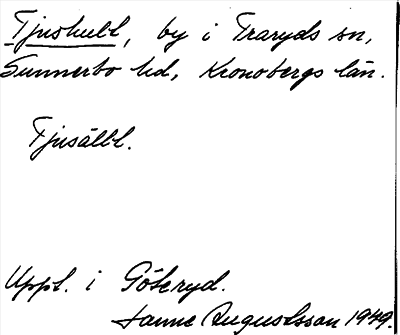 Tjushult, by i Traryds sn,
Sunnerbo hd, Kronobergs län.
Uppt. i Göteryd.
Janne Augustsson 1949.